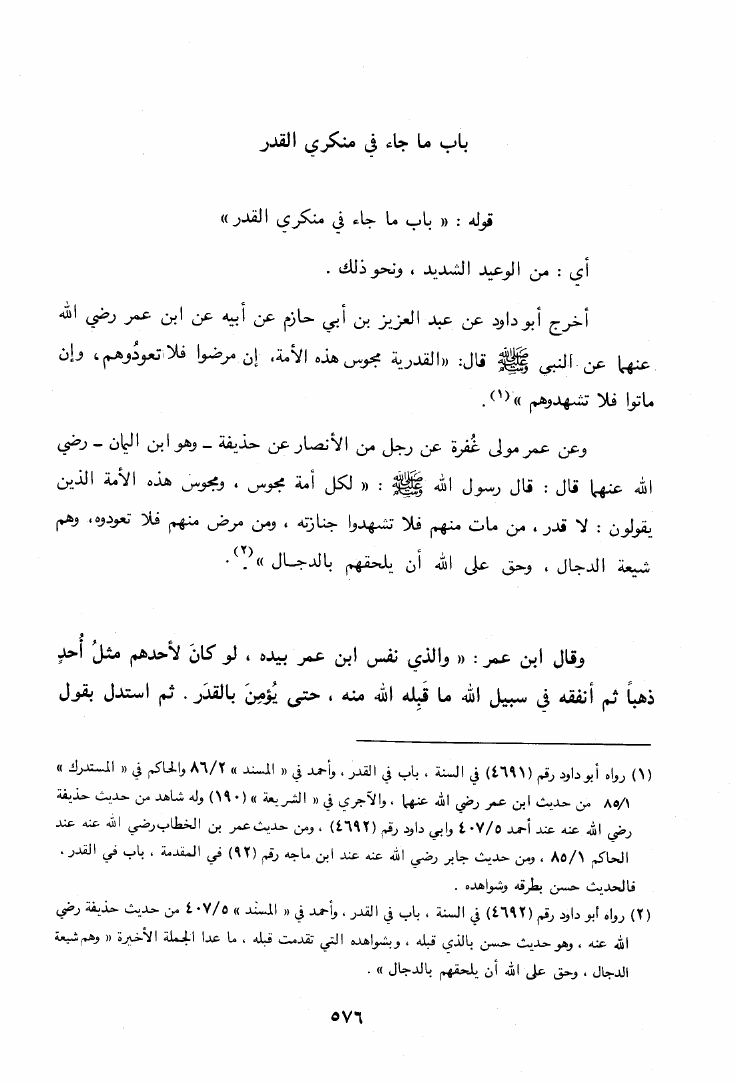 باب ما جاء في منكري القدر
قوله : « باب ما جاء في منكري القدر »
أي : من الوعيد الشديد ، ونحو ذلك .
أخرج أبو داود عن عبد العزيز بن أبي حازم عن أبيه عن ابن عمر رضي الله
عنهما عن النبي ﷺ قال: «القدرية مجوس هذه الأمة، إن مرضوا فلا تعودُوهم، وإن
ماتوا فلا تشهدوهم »(١).
وعن عمر مولى غُفرة عن رجل من الأنصار عن حذيفة ـ وهو ابن اليمان ـ رضي
الله عنهما قال : قال رسول الله ﷺ : « لكل أمة مجوس ، ومجوس هذه الأمة الذين
يقولون : لا قدر ، من مات منهم فلا تشهدوا جنازته ، ومن مرض منهم فلا تعودوه، وهم
شيعة الدجال ، وحق على الله أن يلحقهم بالدجـال »(٢).
وقال ابن عمر : « والذي نفس ابن عمر بيده ، لو كانَ لأحدهم مثلُ أُحدٍ
ذهباً ثم أنفقه في سبيل الله ما قَبِله الله منه ، حتى يُؤمِنَ بالقدَر . ثم استدل بقول
(١) رواه أبو داود رقم (٤٦٩١) في السنة ، باب في القدر ، وأحمد في « المسند » ٨٦/٢ والحاكم في « المستدرك »
٨٥/١ من حديث ابن عمر رضي الله عنهما ، والآجري في « الشريعة » (١٩٠) وله شاهد من حديث حذيفة
رضي الله عنه عند أحمد ٤٠٧/٥ وابي داود رقم (٤٦٩٢) ، ومن حديث عمر بن الخطاب رضي الله عنه عند
الحاكم ٨٥/١ ، ومن حديث جابر رضي الله عنه عند ابن ماجه رقم (٩٢) في المقدمة ، باب في القدر .
فالحديث حسن بطرقه وشواهده .
(٢) رواه أبو داود رقم (٤٦٩٢) في السنة ، باب في القدر ، وأحمد في « المسند » ٤٠٧/٥ من حديث حذيفة رضي
الله عنه ، وهو حديث حسن بالذي قبله ، وبشواهده التي تقدمت قبله ، ما عدا الجملة الأخيرة « وهم شيعة
الدجال ، وحق على الله أن يلحقهم بالدجال » .
٥٧٦